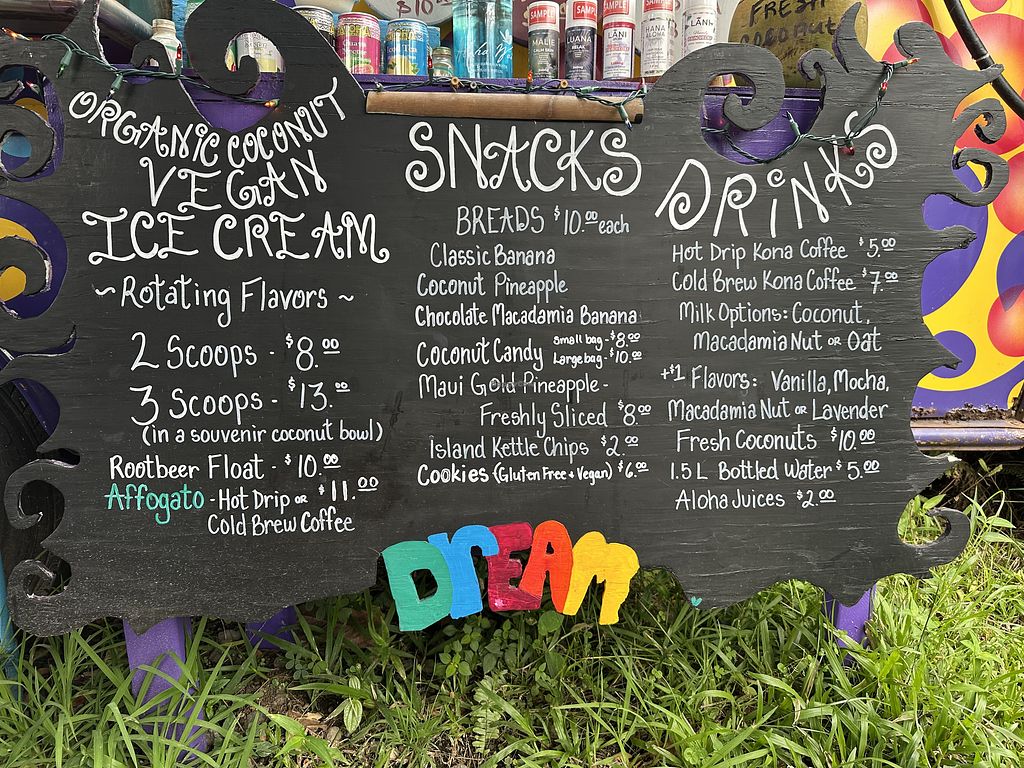 SAMPLE
SAMPLE
SAMPLE
SAMPLE
SAMPLE
MALIE
LUANA
RELAX
LĀNI
HANA
ALOHA
LĀNI
$10.00
FRESH
COCONUT
ORGANIC COCONUT
VEGAN
ICE CREAM
~Rotating Flavors~
2 Scoops - $8.00
3 Scoops - $13.00
(in a souvenir coconut bowl)
Rootbeer Float - $10.00
Affogato - Hot Drip OR $11.00
Cold Brew Coffee
SNACKS
BREADS $10.00 each
Classic Banana
Coconut Pineapple
Chocolate Macadamia Banana
Coconut Candy Small bag - $8.00
Large bag - $10.00
Maui Gold Pineapple -
Freshly Sliced $8.00
Island Kettle Chips $2.00
Cookies (Gluten Free + Vegan) $6.00
DRiNKS
Hot Drip Kona Coffee $5.00
Cold Brew Kona Coffee $7.00
Milk Options: Coconut,
Macadamia Nut OR Oat
+$1 Flavors: Vanilla, Mocha,
Macadamia Nut OR Lavender
Fresh Coconuts $10.00
1.5 L Bottled Water $5.00
Aloha Juices $2.00
DrEAm